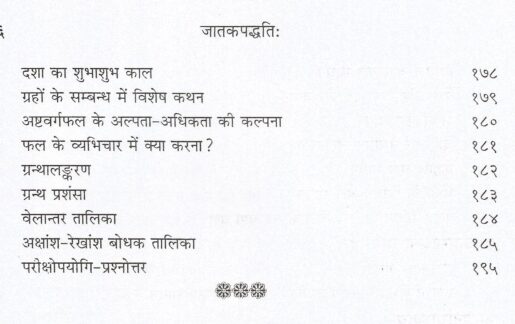 जातकपद्धतिः
दशा का शुभाशुभ काल १७८
ग्रहों के सम्बन्ध में विशेष कथन १७९
अष्टवर्गफल के अल्पता-अधिकता की कल्पना १८०
फल के व्यभिचार में क्या करना? १८१
ग्रन्थालङ्करण १८२
ग्रन्थ प्रशंसा १८३
वेलान्तर तालिका १८४
अक्षांश-रेखांश बोधक तालिका १८५
परीक्षोपयोगि-प्रश्नोत्तर १९५